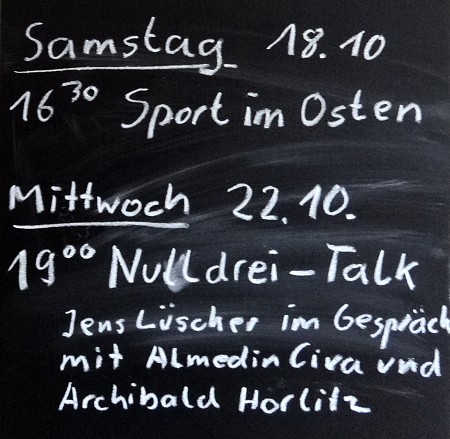 Samstag 18.10
16³⁰ Sport im Osten
Mittwoch 22.10.
19⁰⁰ Nulldrei - Talk
Jens Lüscher im Gespräch
mit Almedin Civa und
Archibald Horlitz